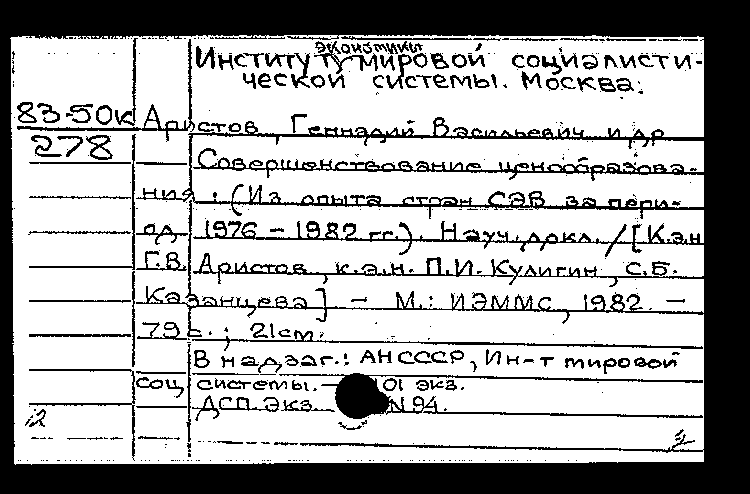 экономики
Институт мировой социалисти-
ческой системы. Москва.
83-50к Аристов, Геннадий Васильевич и др
278 Совершенствование ценообразова-
ния: (Из опыта стран СЭВ за пери-
од 1976-1982 гг.). Науч. докл. / [К.э.н
Г.В. Аристов, к.э.н. П.И. Кулигин, С.Б.
Казанцева] - М.: ИЭММС, 1982. -
79 с.; 21см.
В надзаг.: АН СССР, Ин-т мировой
соц системы. - 101 экз.
ДСП. Экз. N 94.
12